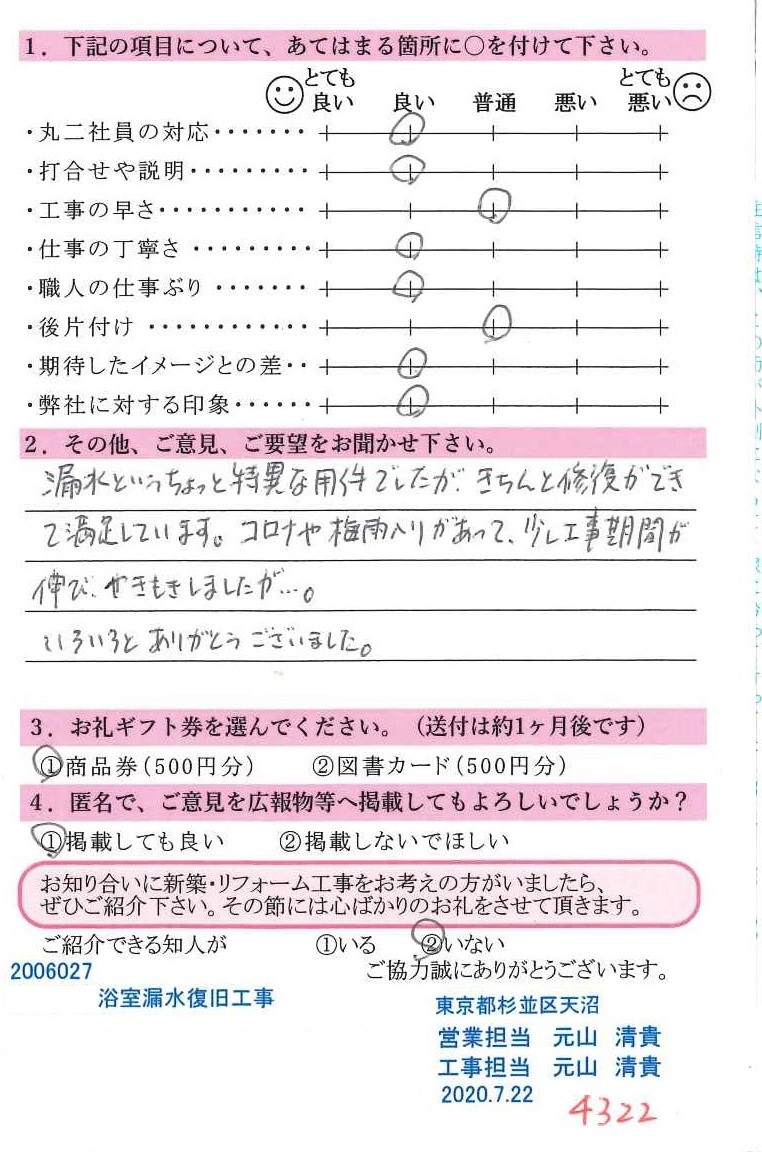 1．下記の項目について、あてはまる箇所に○を付けて下さい。
とても良い 良い 普通 悪い とても悪い
・丸二社員の対応・・・・・・・
・打合せや説明・・・・・・・・・
・工事の早さ・・・・・・・・・・・
・仕事の丁寧さ ・・・・・・・・・
・職人の仕事ぶり ・・・・・・・
・後片付け ・・・・・・・・・・・・
・期待したイメージとの差・・
・弊社に対する印象・・・・・・
2．その他、ご意見、ご要望をお聞かせ下さい。
漏水というちょっと特異な用件でしたが、きちんと修復ができ
て満足しています。コロナや梅雨入りがあって、少し工事期間が
伸び、やきもきしましたが…。
いろいろとありがとうございました。
3．お礼ギフト券を選んでください。（送付は約1ヶ月後です）
①商品券（500円分） ②図書カード（500円分）
4．匿名で、ご意見を広報物等へ掲載してもよろしいでしょうか？
①掲載しても良い ②掲載しないでほしい
お知り合いに新築・リフォーム工事をお考えの方がいましたら、
ぜひご紹介下さい。その節には心ばかりのお礼をさせて頂きます。
ご紹介できる知人が ①いる ②いない
ご協力誠にありがとうございます。
2006027
浴室漏水復旧工事
東京都杉並区天沼
営業担当 元山 清貴
工事担当 元山 清貴
2020.7.22
4322